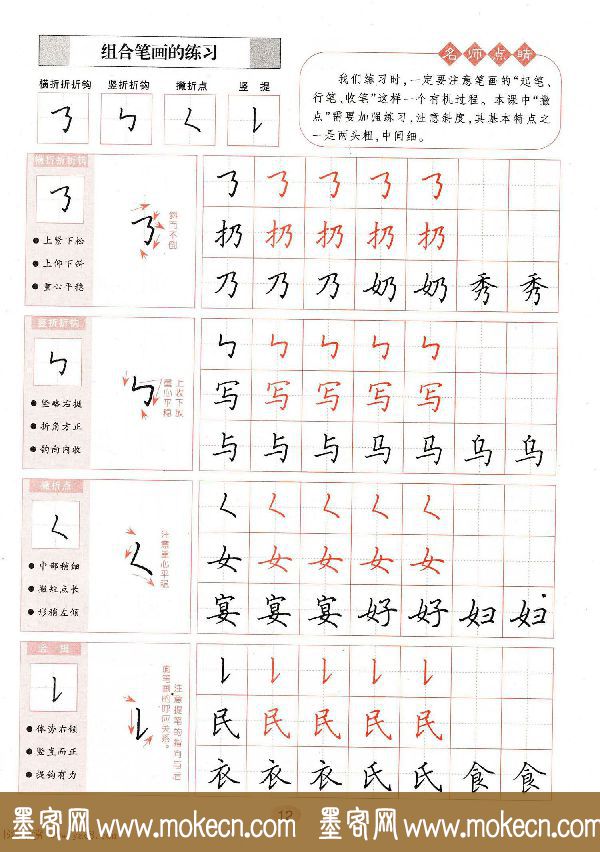 组合笔画的练习
名师点睛
我们练习时,一定要注意笔画的“起笔、
行笔、收笔”这样一个有机过程。本课中“撇
点”需要加强练习,注意斜度,其基本特点之
一是两头粗,中间细。
横折折折钩 竖折折钩 撇折点 竖提
横折折折钩
上紧下松
上仰下斜
重心平稳
斜而不倒
扔 扔 扔 扔 扔
乃 乃 乃 奶 奶 秀 秀
竖折折钩
竖略右挺
折角方正
钩向内收
上收下放
重心平稳
ㄣ ㄣ ㄣ ㄣ ㄣ
写 写 写 写 写
与 与 与 马 马 乌 乌
撇折点
中部稍细
撇短点长
形稍左倾
注意重心平稳
ㄑ ㄑ ㄑ ㄑ ㄑ
女 女 女 女 女
宴 宴 宴 好 好 妇 妇
竖提
体势右倾
竖直而正
提钩有力
注意提笔的指向与后
民 民 民 民 民
衣 衣 衣 氏 氏 食 食
12
墨客网 www.mokecn.com 墨客网 www.mokecn.com